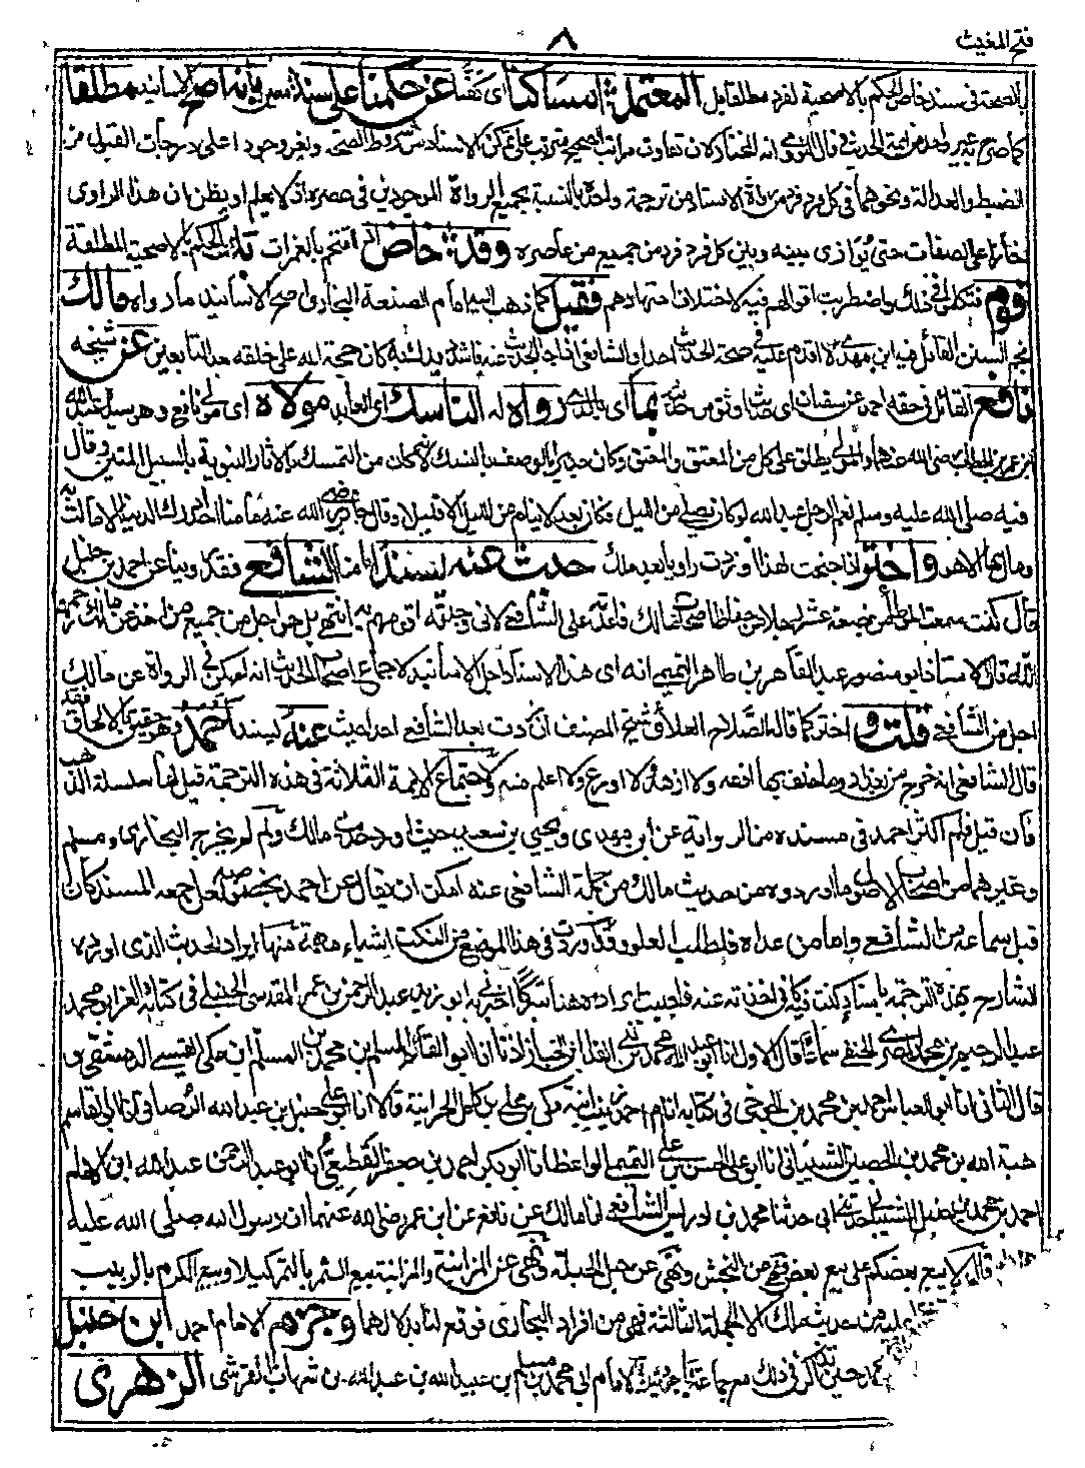 فتح المغيث
٨
بالصحة في سند خاص الحكم بالاصحية لفرد مطلقا بل المعتمد امساكنا اي كفنا عن حكمنا على سند معين بانه اصح الاسانيد مطلقا
كما صرح به غير واحد من ائمة الحديث وقال النووي انه المختار لان تفاوت مراتب الصحيح مترتب على تمكن الاسناد من شروط الصحة ويعز وجود اعلى درجات القبول من
الضبط والعدالة ونحوهما في كل فرد فرد من رواة الاسناد من ترجمة واحدة بالنسبة لجميع الرواة الموجودين في عصره اذ لا يعلم او يظن ان هذا الراوي
حاز اعلى الصفات حتى يوازى بينه وبين كل فرد فرد من جميع من عاصره وقد خاض اذ اقتحم بالغمرات الحكم بالاصحية المطلقة
قوم فتكلموا في ذلك واضطربت اقوالهم فيه لاختلاف اجتهادهم فقيل كما ذهب اليه امام الصنعة البخاري اصح الاسانيد ما رواه مالك
نجم السنن القائل فيه ابن مهدي لا اقدم عليه في صحة الحديث احدا والشافعي اذا جاء الحديث عنه فاشدد يدك به كان حجة الله على خلقه بعد التابعين عن شيخه
نافع القائل في حقه احمد عن سفيان اي حديث اوثق من حديثه بما اي بالذي رواه له الناسك اي العابد مولاه اي مولى نافع وهو سيده عبد الله
بن عمر بن الخطاب رضي الله عنهما والمولى يطلق على كل من المعتق والمعتق وكان جديرا بالوصف بالنسك لانه كان من التمسك بالاثار النبوية بالسبيل المتين وقال
فيه صلى الله عليه وسلم نعم الرجل عبد الله لو كان يصلي من الليل فكان بعد لا ينام من الليل الا قليلا وقال جابر رضي الله عنه ما منا احد ادرك الدنيا الا مالت به
ومال بها الا هو واختر اذا جنحت لهذا وزدت راويا بعد مالك حيث عنه يسند امامنا الشافعي فقد روينا عن احمد بن حنبل
قال كنت سمعت الموطأ من بضعة عشر رجلا من حفاظ اصحاب مالك فاعدته على الشافعي لاني وجدته اقومهم به انتهى بل هو اجل من جميع من اخذ عن مالك رحمهم
الله قال الاستاذ ابو منصور عبد القاهر بن طاهر التميمي انه اي هذا الاسناد اجل الاسانيد لاجماع اصحاب الحديث انه لم يكن في الرواة عن مالك
اجل من الشافعي قلت و اختر كما قاله الصلاح العلائي شيخ المصنف ان زدت بعد الشافعي احدا حيث عنه يسند احمد وهو حقيق بالالحاق فقد
قال الشافعي انه خرج من بغداد وما خلف بها افقه ولا ازهد ولا اورع ولا اعلم منه ولاجتماع الائمة الثلاثة في هذه الترجمة قيل لها سلسلة الذهب
فان قيل فلم اكثر احمد في مسنده من الرواية عن ابن مهدي ويحيى بن سعيد حيث اورد حديث مالك ولم لم يخرج البخاري ومسلم
وغيرهما من اصحاب الاصول ما اوردوه من حديث مالك من جهة الشافعي عنه امكن ان يقال عن احمد بخصوصه لعل جمعه المسند كان
قبل سماعه من الشافعي واما من عداه فلطلب العلو وقد اوردت في هذا الموضع من النكت اشياء مهمة منها ايراد الحديث الذي اورده
الشارح بهذه الترجمة باسناد كنت فيه كاني اخذته عنه فاحببت ايراده هنا تبركا اخبرني به ابو زيد عبد الرحمن بن عمر المقدسي الحنبلي في كتابه والعز ابو محمد
عبد الرحيم بن محمد المصري الحنفي سماعا قال الاول انا ابو عبد الله محمد بن الخباز اذنا انا ابو الغنائم المسلم بن محمد بن المسلم بن مكي القيسي الدمشقي و
قال الثاني انا ابو العباس احمد بن محمد بن الجوخي في كتابه انا ام احمد زينب ابنة مكي بن علي بن كامل الحرانية قالا انا ابو علي حنبل بن عبد الله الرصافي انا ابو القاسم
هبة الله بن محمد بن الحصين الشيباني انا ابو علي الحسن بن علي التميمي الواعظ انا ابو بكر احمد بن جعفر القطيعي انا ابو عبد الرحمن عبد الله ابن الامام
احمد بن محمد بن حنبل الشيباني حدثني ابي حدثنا محمد بن ادريس الشافعي انا مالك عن نافع عن ابن عمر رضي الله عنهما ان رسول الله صلى الله عليه
قال لا يبيع بعضكم على بيع بعض ونهى عن النجش ونهى عن حبل الحبلة ونهى عن المزابنة والمزابنة بيع الثمر بالتمر كيلا وبيع الكرم بالزبيب
من حديث مالك الا الجملة الثالثة فهي من افراد البخاري فوقع لنا بدلا لهما وجزم الامام احمد ابن حنبل
حين تذاكر في ذلك مع جماعة باجودية الامام ابي محمد بن مسلم بن عبيد الله بن عبد الله بن شهاب القرشي الزهري